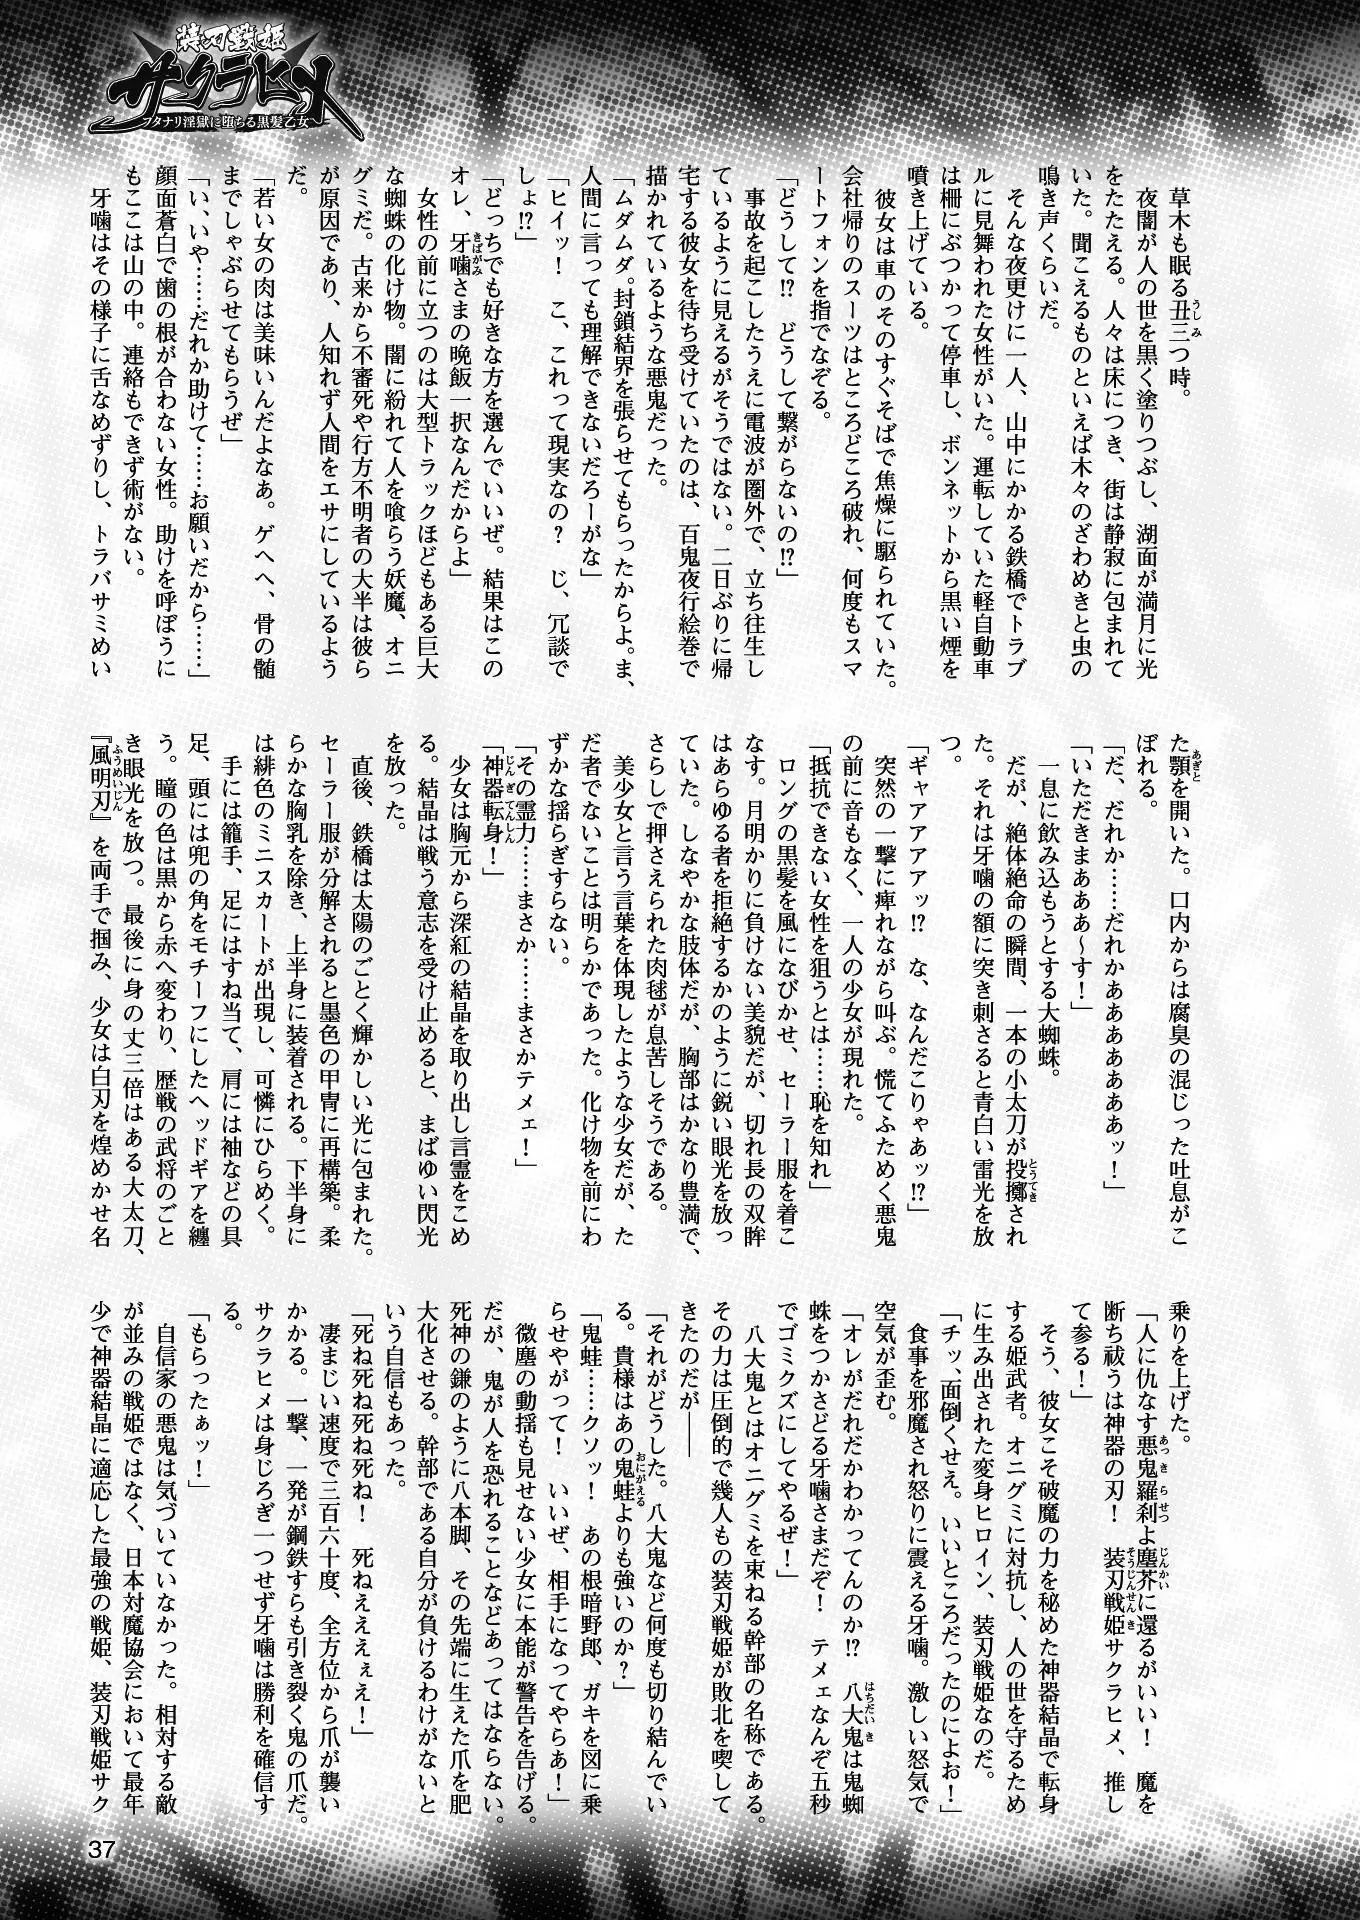 装刃戦姫
サクラヒメ
フタナリ淫獄に堕ちる黒髪乙女
草木も眠る丑三つ時。
夜闇が人の世を黒く塗りつぶし、湖面が満月に光
をたたえる。人々は床につき、街は静寂に包まれて
いた。聞こえるものといえば木々のざわめきと虫の
鳴き声くらいだ。
そんな夜更けに一人、山中にかかる鉄橋でトラブ
ルに見舞われた女性がいた。運転していた軽自動車
は柵にぶつかって停車し、ボンネットから黒い煙を
噴き上げている。
彼女は車のそのすぐそばで焦燥に駆られていた。
会社帰りのスーツはところどころ破れ、何度もスマ
ートフォンを指でなぞる。
「どうして!?　どうして繋がらないの!?」
事故を起こしたうえに電波が圏外で、立ち往生し
ているように見えるがそうではない。二日ぶりに帰
宅する彼女を待ち受けていたのは、百鬼夜行絵巻で
描かれているような悪鬼だった。
「ムダムダ。封鎖結界を張らせてもらったからよ。ま、
人間に言っても理解できないだろーがな」
「ヒイッ！　こ、これって現実なの？　じ、冗談で
しょ!?」
「どっちでも好きな方を選んでいいぜ。結果はこの
オレ、牙噛さまの晩飯一択なんだからよ」
女性の前に立つのは大型トラックほどもある巨大
な蜘蛛の化け物。闇に紛れて人を喰らう妖魔、オニ
グミだ。古来から不審死や行方不明者の大半は彼ら
が原因であり、人知れず人間をエサにしているよう
だ。
「若い女の肉は美味いんだよなあ。ゲヘヘ、骨の髄
までしゃぶらせてもらうぜ」
「い、いや……だれか助けて……お願いだから……」
顔面蒼白で歯の根が合わない女性。助けを呼ぼうに
もここは山の中。連絡もできず術がない。
牙噛はその様子に舌なめずりし、トラバサミめい
た顎を開いた。口内からは腐臭の混じった吐息がこ
ぼれる。
「だ、だれか……だれかあああああああッ！」
「いただきまあああ～す！」
一息に飲み込もうとする大蜘蛛。
だが、絶体絶命の瞬間、一本の小太刀が投擲され
た。それは牙噛の額に突き刺さると青白い雷光を放
つ。
「ギャアアアアアッ!?　な、なんだこりゃあッ!?」
突然の一撃に痺れながら叫ぶ。慌てふためく悪鬼
の前に音もなく、一人の少女が現れた。
「抵抗できない女性を狙うとは……恥を知れ」
ロングの黒髪を風になびかせ、セーラー服を着こ
なす。月明かりに負けない美貌だが、切れ長の双眸
はあらゆる者を拒絶するかのように鋭い眼光を放っ
ていた。しなやかな肢体だが、胸部はかなり豊満で、
さらしで押さえられた肉毬が息苦しそうである。
美少女と言う言葉を体現したような少女だが、た
だ者でないことは明らかであった。化け物を前にわ
ずかな揺らぎすらない。
「その霊力……まさか……まさかテメェ！」
「神器転身！」
少女は胸元から深紅の結晶を取り出し言霊をこめ
る。結晶は戦う意志を受け止めると、まばゆい閃光
を放った。
直後、鉄橋は太陽のごとく輝かしい光に包まれた。
セーラー服が分解されると墨色の甲冑に再構築。柔
らかな胸乳を除き、上半身に装着される。下半身に
は緋色のミニスカートが出現し、可憐にひらめく。
手には籠手、足にはすね当て、肩には袖などの具
足、頭には兜の角をモチーフにしたヘッドギアを纏
う。瞳の色は黒から赤へ変わり、歴戦の武将のごと
き眼光を放つ。最後に身の丈三倍はある大太刀、
『風明刃』を両手で掴み、少女は白刃を煌めかせ名
乗りを上げた。
「人に仇なす悪鬼羅刹よ塵芥に還るがいい！　魔を
断ち祓うは神器の刃！　装刃戦姫サクラヒメ、推し
て参る！」
そう、彼女こそ破魔の力を秘めた神器結晶で転身
する姫武者。オニグミに対抗し、人の世を守るため
に生み出された変身ヒロイン、装刃戦姫なのだ。
「チッ、面倒くせえ。いいところだったのによお！」
食事を邪魔され怒りに震える牙噛。激しい怒気で
空気が歪む。
「オレがだれだかわかってんのか!?　八大鬼は鬼蜘
蛛をつかさどる牙噛さまだぞ！　テメェなんぞ五秒
でゴミクズにしてやるぜ！」
八大鬼とはオニグミを束ねる幹部の名称である。
その力は圧倒的で幾人もの装刃戦姫が敗北を喫して
きたのだが――
「それがどうした。八大鬼など何度も切り結んでい
る。貴様はあの鬼蛙よりも強いのか？」
「鬼蛙……クソッ！　あの根暗野郎、ガキを図に乗
らせやがって！　いいぜ、相手になってやらあ！」
微塵の動揺も見せない少女に本能が警告を告げる。
だが、鬼が人を恐れることなどあってはならない。
死神の鎌のように八本脚、その先端に生えた爪を肥
大化させる。幹部である自分が負けるわけがないと
いう自信もあった。
「死ね死ね死ね死ね！　死ねえええぇえ！」
凄まじい速度で三百六十度、全方位から爪が襲い
かかる。一撃、一発が鋼鉄すらも引き裂く鬼の爪だ。
サクラヒメは身じろぎ一つせず牙噛は勝利を確信す
る。
「もらったぁッ！」
自信家の悪鬼は気づいていなかった。相対する敵
が並みの戦姫ではなく、日本対魔協会において最年
少で神器結晶に適応した最強の戦姫、装刃戦姫サク
37